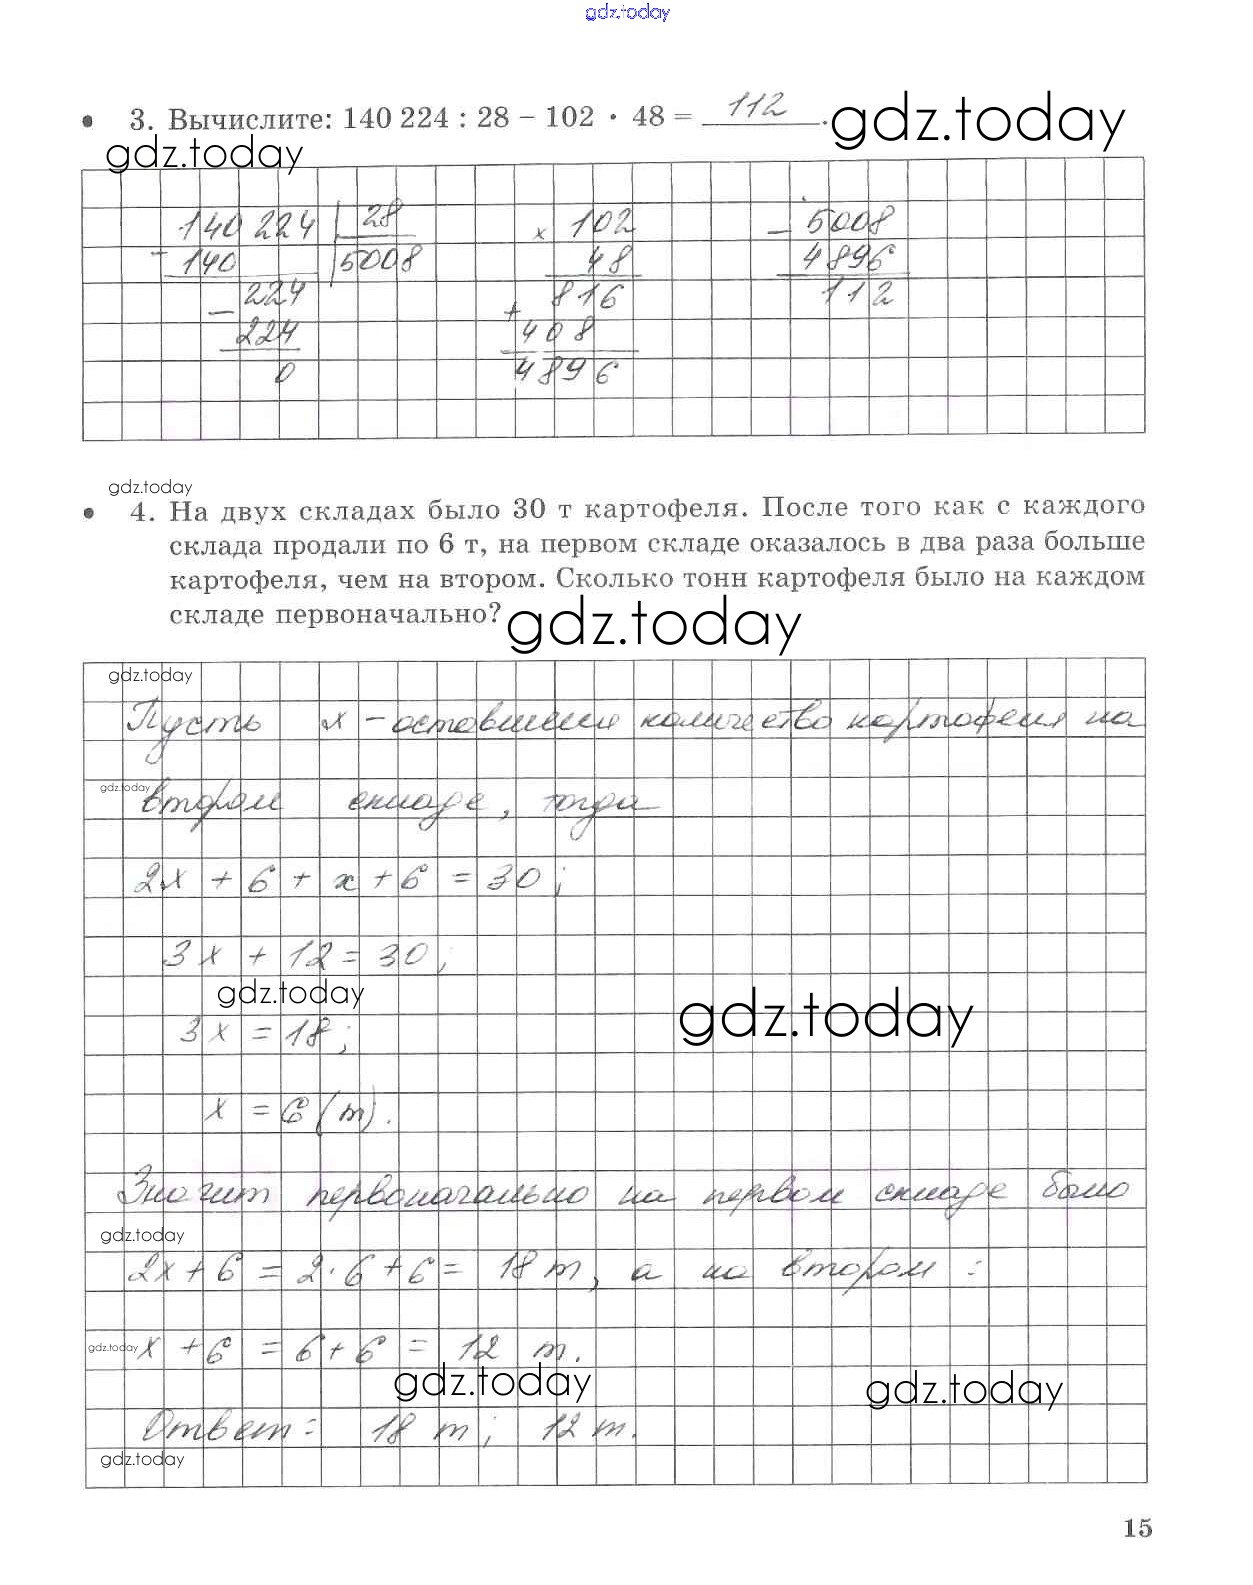 gdz.today
• 3. Вычислите: 140 224 : 28 – 102 · 48 = 112.
gdz.today
gdz.today
140 224 | 28
– 140 | 5008
– 224
224
0
× 102
48
+ 816
408
4896
– 5008
4896
112
gdz.today
• 4. На двух складах было 30 т картофеля. После того как с каждого
склада продали по 6 т, на первом складе оказалось в два раза больше
картофеля, чем на втором. Сколько тонн картофеля было на каждом
складе первоначально?
gdz.today
gdz.today
Пусть x – оставшееся количество картофеля на
gdz.today
втором складе, тогда
2x + 6 + x + 6 = 30;
3x + 12 = 30;
gdz.today
gdz.today
3x = 18;
x = 6 (т).
Значит первоначально на первом складе было
gdz.today
2x + 6 = 2 · 6 + 6 = 18 т, а на втором :
gdz.today
x + 6 = 6 + 6 = 12 т.
gdz.today
gdz.today
Ответ: 18 т; 12 т.
gdz.today
15